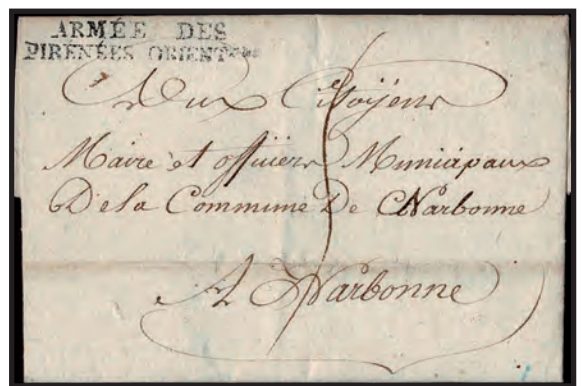 ARMÉE DES
PIRÉNÉES ORIENT^ales
Aux Citoÿens
Maire et officiers Municipaux
De la Commune De Narbonne
A Narbonne